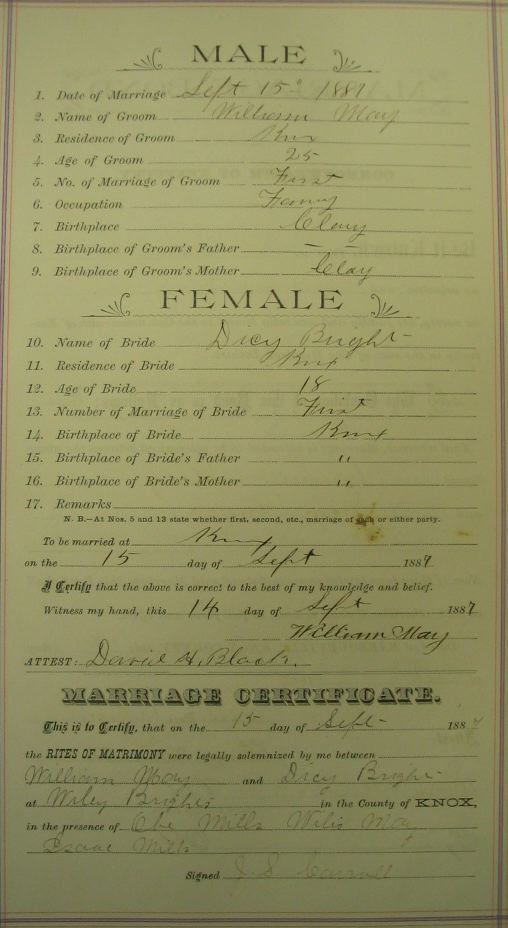 MALE
1. Date of Marriage Sept 15 1887
2. Name of Groom William May
3. Residence of Groom Knx
4. Age of Groom 25
5. No. of Marriage of Groom First
6. Occupation
7. Birthplace Clay
8. Birthplace of Groom's Father — —
9. Birthplace of Groom's Mother Clay
FEMALE
10. Name of Bride Dicy Bright
11. Residence of Bride Knx
12. Age of Bride 18
13. Number of Marriage of Bride First
14. Birthplace of Bride Knx
15. Birthplace of Bride's Father "
16. Birthplace of Bride's Mother "
17. Remarks
N. B.—At Nos. 5 and 13 state whether first, second, etc., marriage of each or either party.
To be married at Knx
on the 15 day of Sept 1887
I Certify that the above is correct to the best of my knowledge and belief.
Witness my hand, this 14 day of Sept 1887
William May
ATTEST: David H. Black
MARRIAGE CERTIFICATE.
This is to Certify, that on the 15 day of Sept 1887
the RITES OF MATRIMONY were legally solemnized by me between
William May and Dicy Bright
at Wiley Brights in the County of KNOX,
in the presence of Obe Mills Wilis May
Isaac Mills
Signed J. S.